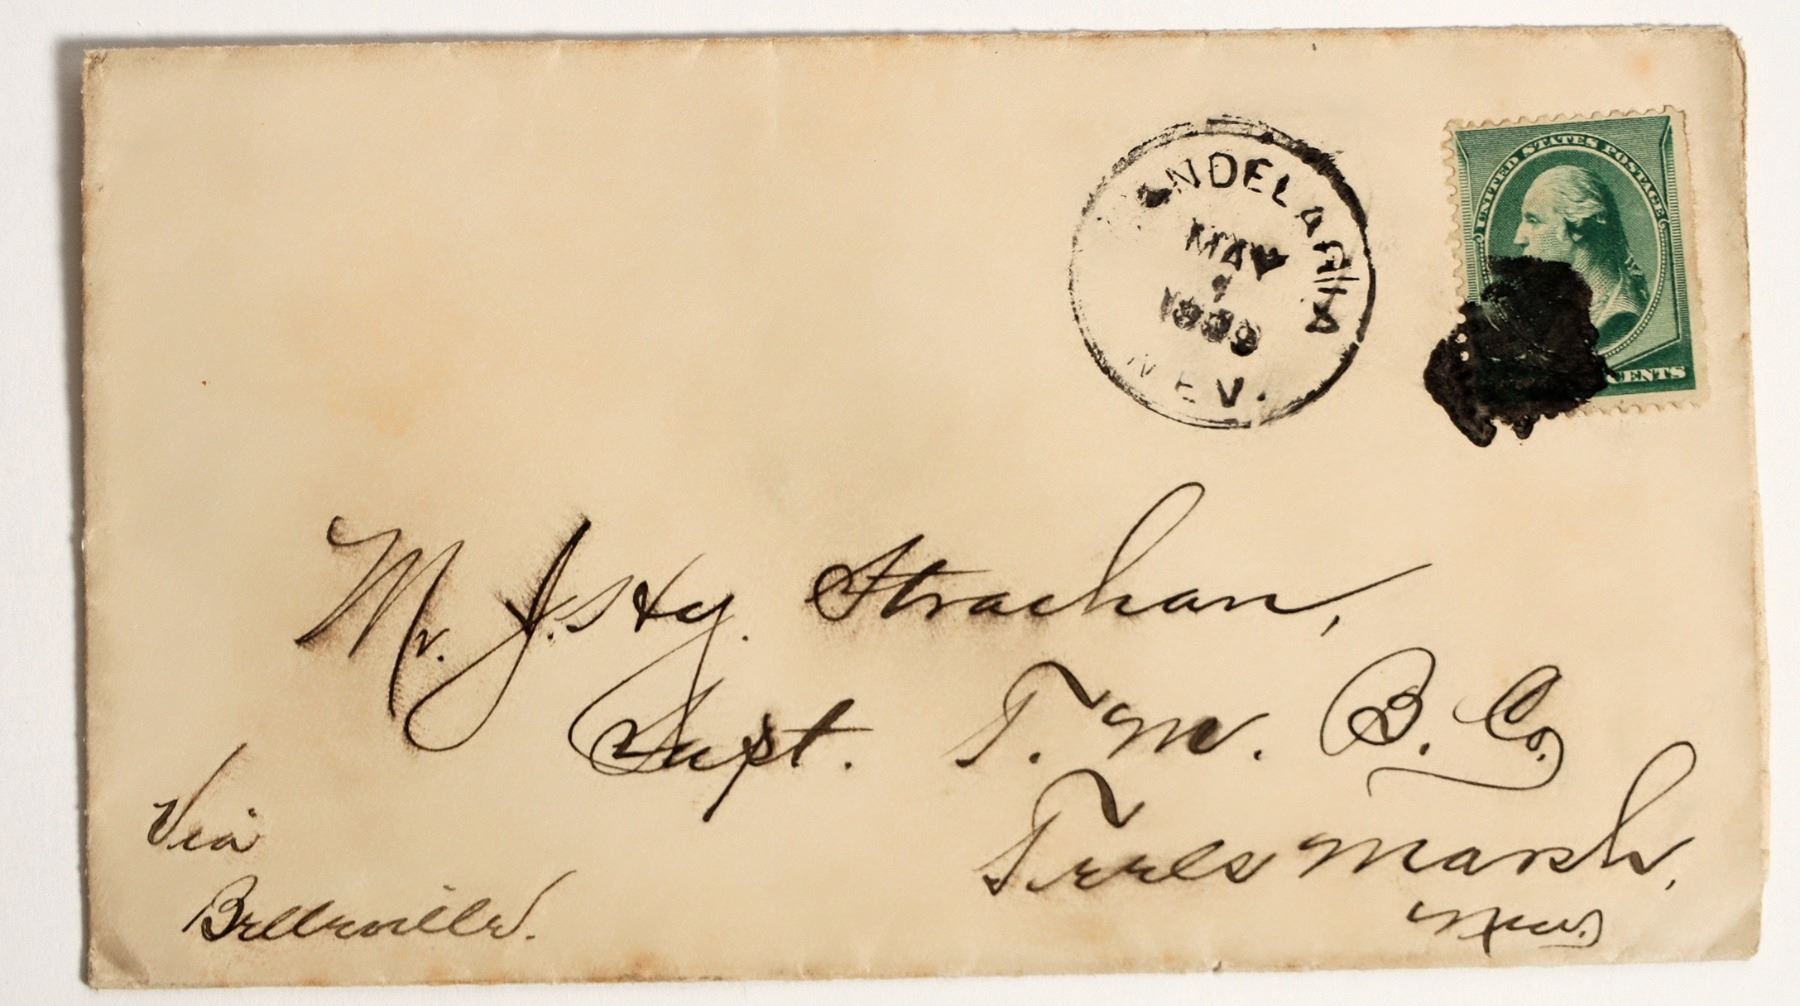 ANDELARIA
MAY
1
NEV.
UNITED STATES POSTAGE
CENTS
Mr. J. S. Hy. Strachan,
Supt. T. M. B. Co.
Teels Marsh,
Nev.
Via
Belleville.